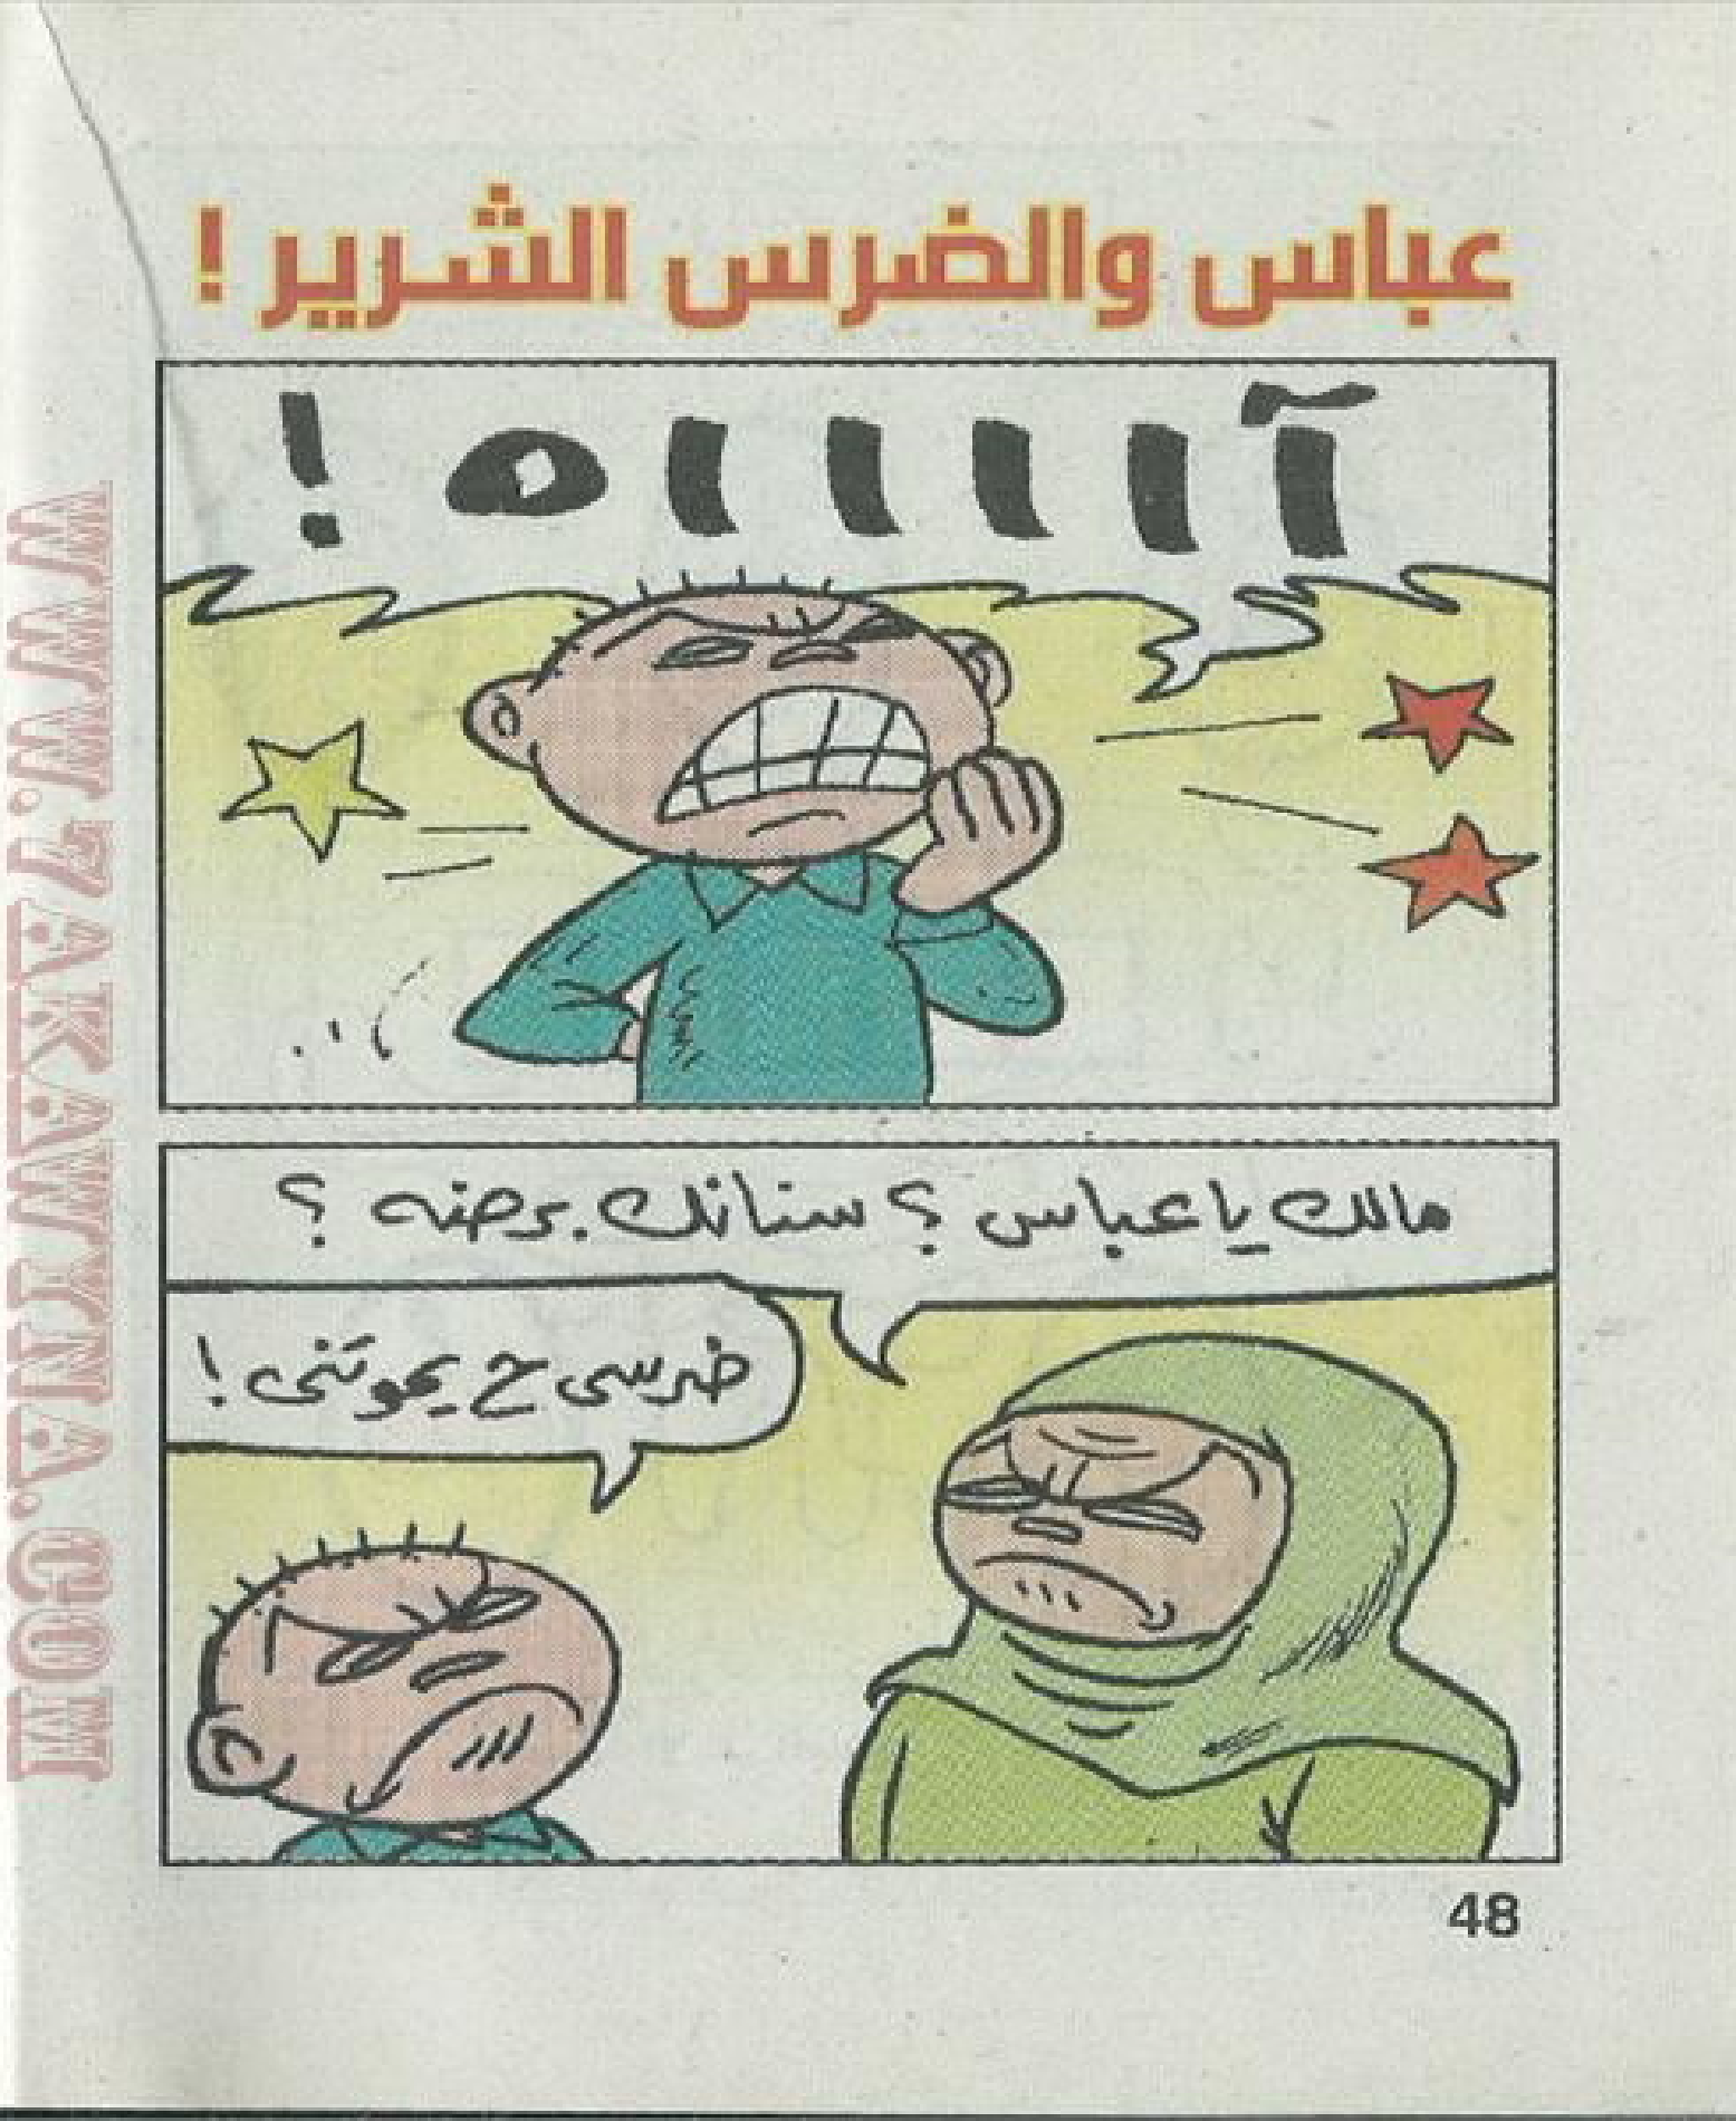 عباس والضرس الشرير !
آااااه !
مالك يا عباس ؟ سنانك برضه ؟
ضرسى ح يموتنى !
48
WWW.7AKAWINA.COM